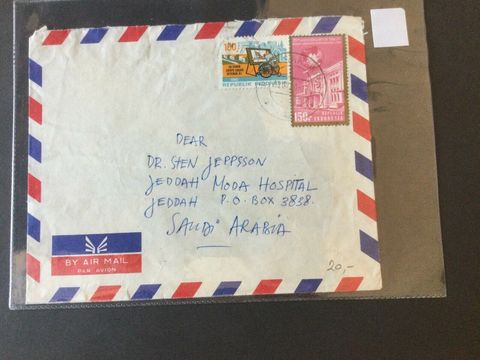 180
REPUBLIK INDONESIA
150r
REPUBLIK
INDONESIA
DEAR
DR. STEN JEPPSSON
JEDDAH MODA HOSPITAL
JEDDAH P.O. BOX 3838.
SAUDI ARABIA
BY AIR MAIL
PAR AVION
20,-